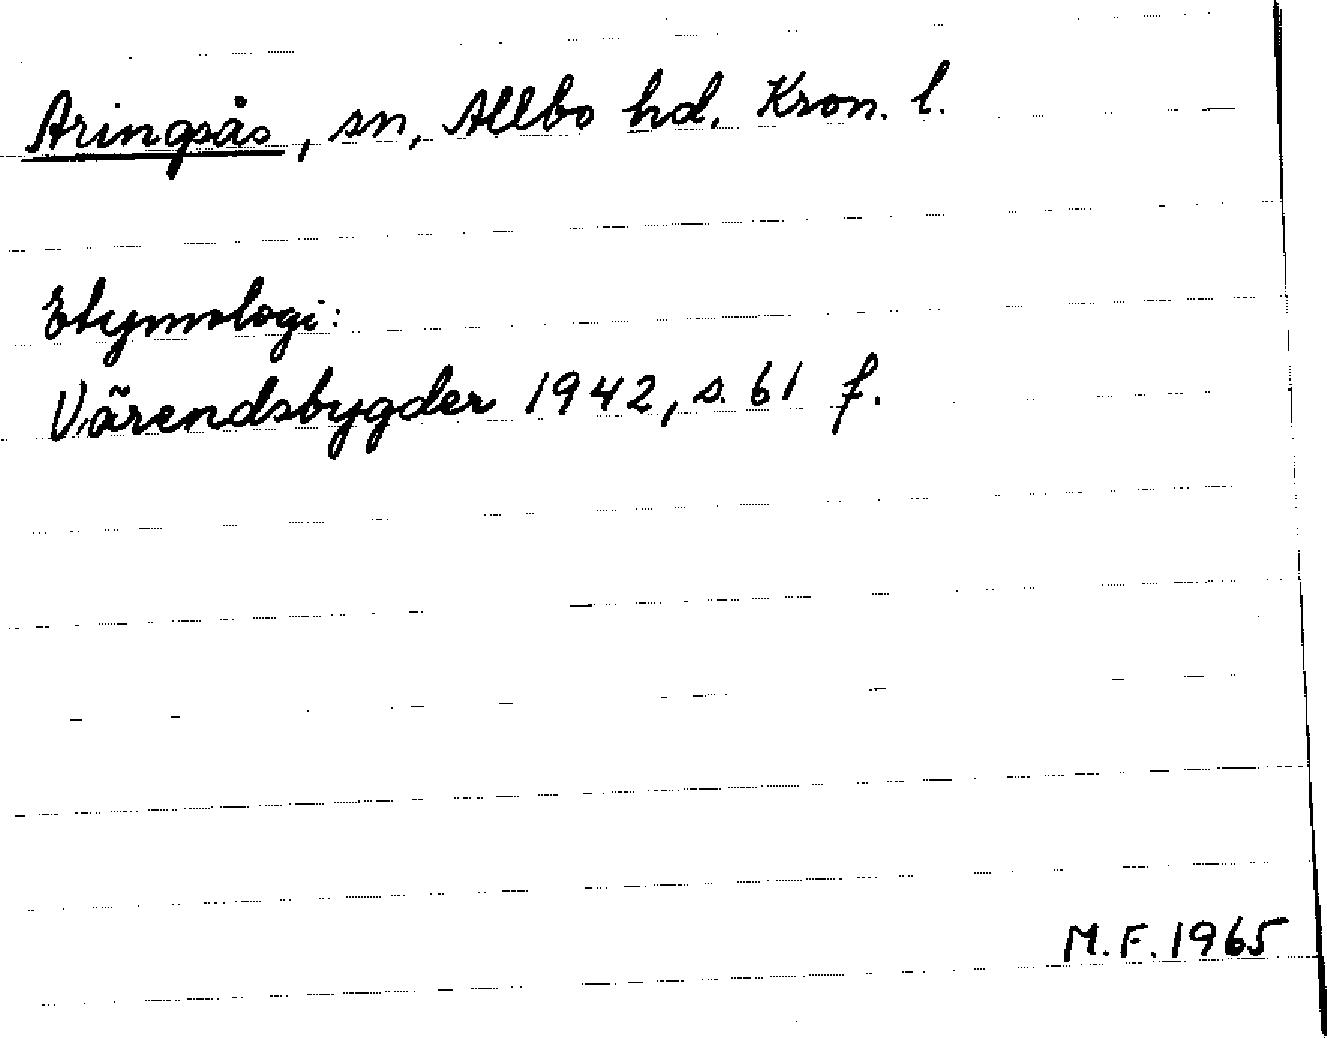 Aringsås, sn, Allbo hd. Kron. l.
Etymologi:
Värendsbygder 1942, s. 61 f.
M.F. 1965